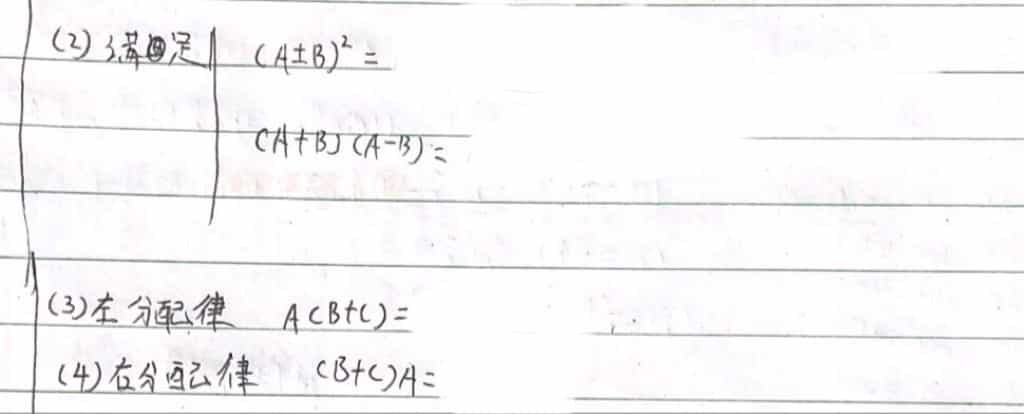 (2) 满足 (A±B)² =
(A+B)(A-B)=
(3)左分配律 A(B+C)=
(4)右分配律 (B+C)A=